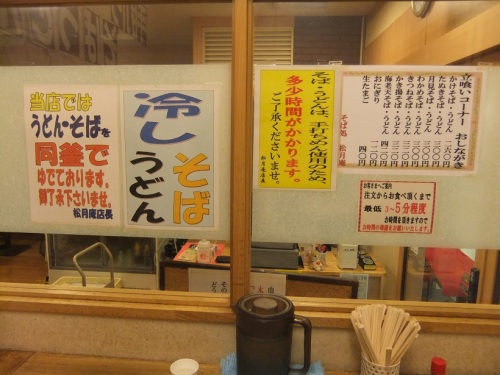 当店では
うどん・そばを
同釜で
ゆでております。
御了承下さいませ。
松月庵店長
冷し
そば
うどん
そば・うどんは、手打ちめん使用のため、
多少時間がかかります。
ご了承くださいませ。
松月庵店長
立喰いコーナー おしながき
かけそば・うどん
たぬきそば・うどん
月見そば・うどん
わかめそば・うどん
きつねそば・うどん
かき揚そば・うどん
海老天そば・うどん
おにぎり
生たまご
そば処 松月庵
お客さまへご案内
注文からお食べ頂くまで
最低 3~5分程度
お時間を頂きますので
お時間の確認をお願いいたします。